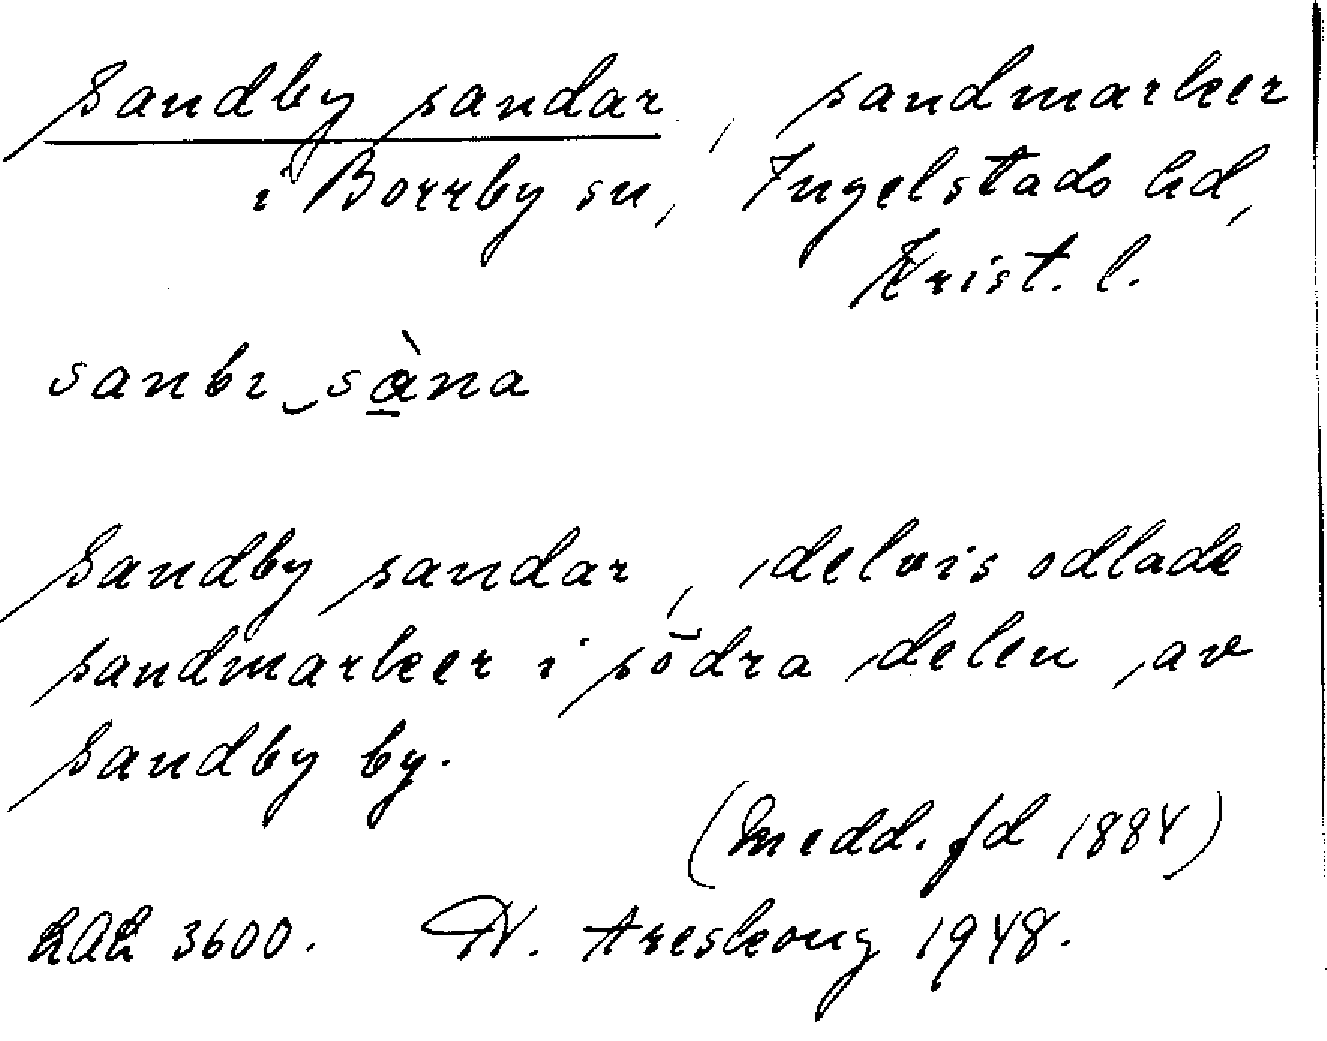 Sandby sandar, sandmarker
i Borrby sn, Ingelstads hd,
Krist. l.
sanbı sàna
Sandby sandar, delvis odlade
sandmarker i södra delen av
Sandby by.
(Medd. fd 1884)
LAL 3600. W. Areskoug 1948.